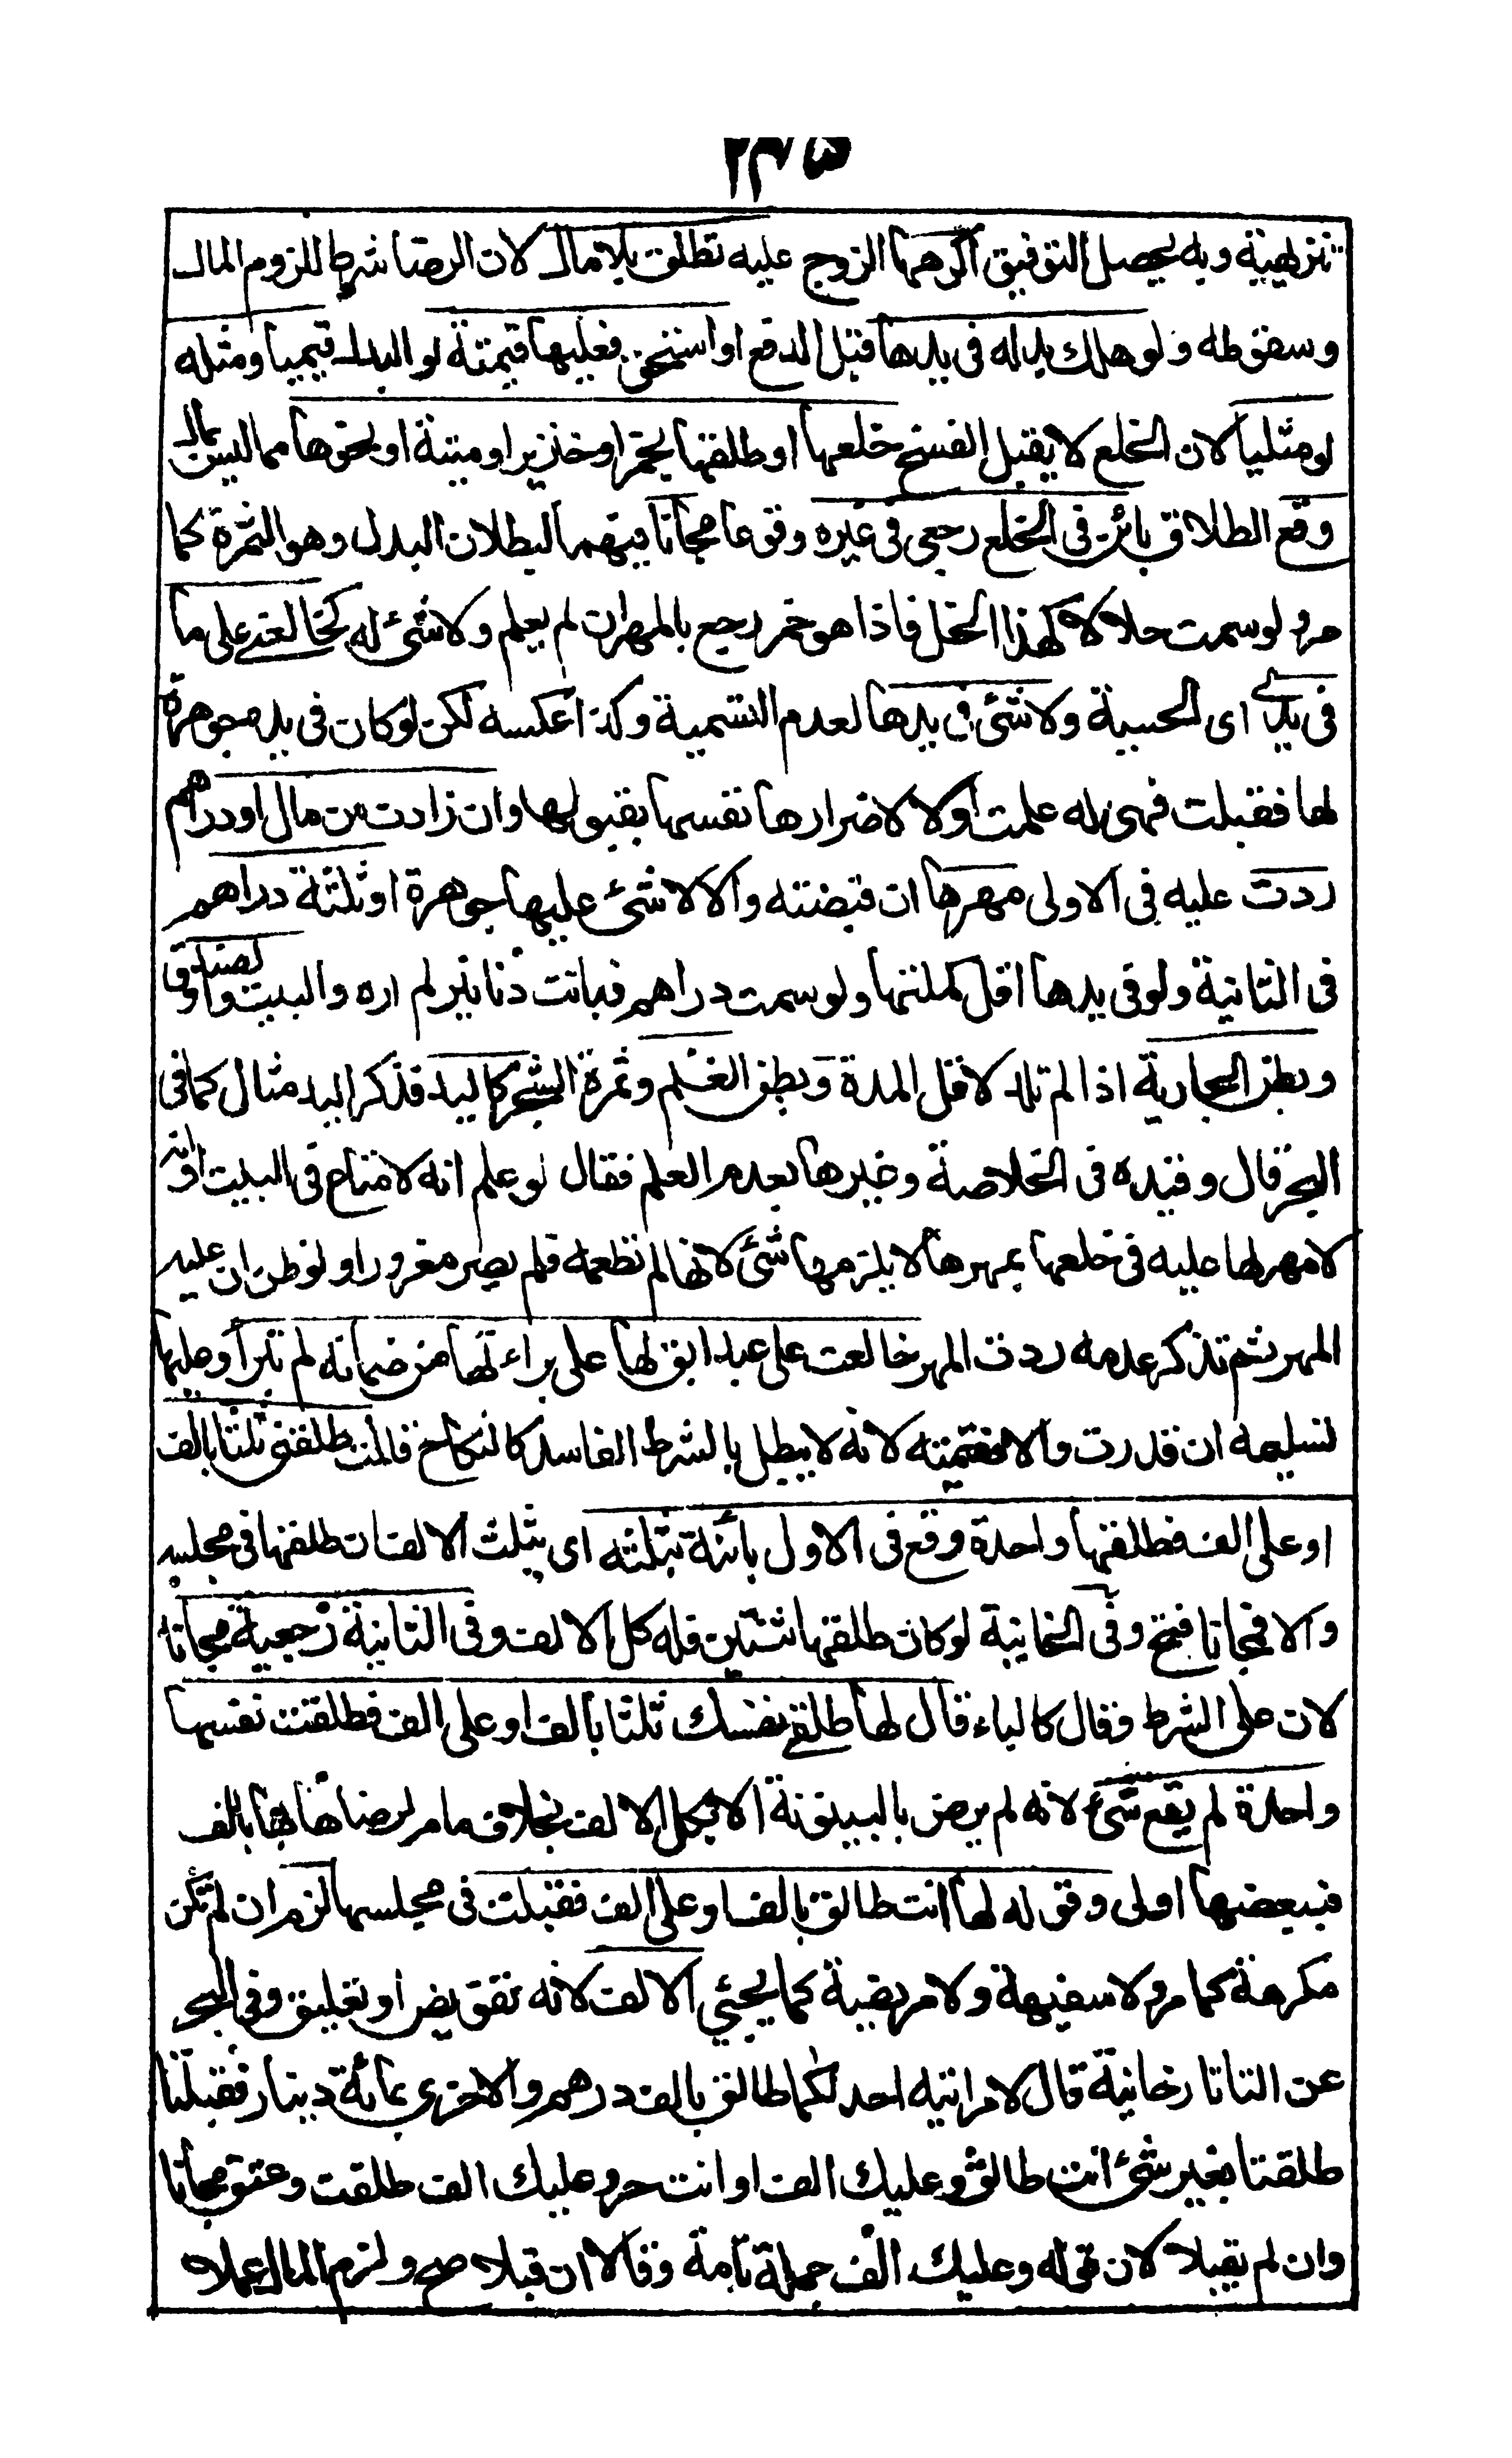 ٢٣٥
تنزيهية وبه يحصل التوفيق اكرهها الزوج عليه تطلق بلا مال لان الرضا شرط للزوم المال
وسقوطه ولو هلك بدله في يدها قبل الدفع او استحق فعليها قيمته لو البدل قيميا ومثله
لو مثليا لان الخلع لا يقبل الفسخ خلعها او طلقها بخمر او خنزير او ميتة او نحوها مما ليس بمال
وقع الطلاق بائن في الخلع رجعي في غيره وقوعا مجانا فيهما لبطلان البدل وهو الثمرة كما
مر ولو سمت حلالا كهذا الخل فاذا هو خمر رجع بالمهر ان لم يعلم ولا شئ له كخالعني على ما
في يدي اي الحسية ولا شئ في يدها لعدم التسمية وكذا عكسه لكن لو كان في يده جوهرة
لها فقبلت فهى له علمت اولا لاضرارها نفسها بقبولها وان زادت من مال او دراهم
ردت عليه في الاولى مهرها ان قبضته والا لا شئ عليها جوهرة او ثلثة دراهم
في الثانية ولو في يدها اقل كملتها ولو سمت دراهم فبانت دنانير لم اره والبيت والصندوق
وبطن الجارية اذا لم تلد لاقل المدة وبطن الغنم وثمرة الشجر كاليد فذكر اليد مثال كما في
البحر قال وقيده في الخلاصة وغيرها بعدم العلم فقال لو علم انه لا متاع في البيت او انه
لا مهر لها عليه في خلعها بمهرها لا يلزمها شئ لانها لم تطمعه فلم يصر مغرورا ولو ظن ان عليه
المهر ثم تذكر عدمه ردت المهر خالعت على عبد ابق لها على براءتها من ضمانه لم تبرأ وعليها
تسليمه ان قدرت والا فقيمته لانه لا يبطل بالشرط الفاسد كالنكاح قالت طلقني ثلثا بالف
او على الف فطلقها واحدة وقع في الاول بائنة بثلثه اي بثلث الالف ان طلقها في مجلسه
والا فمجانا فتح وفي الخانية لو كان طلقها ثنتين فله كل الالف وفي الثانية رجعية مجانا
لان على للشرط وقال كالباء قال لها طلقي نفسك ثلثا بالف او على الف فطلقت نفسها
واحدة لم يقع شئ لانه لم يرض بالبينونة الا بكل الالف بخلاف ما مر لرضاها بها بالف
فببعضها اولى وقوله لها انت طالق بالف او على الف فقبلت في مجلسها لزم ان لم تكن
مكرهة كما مر ولا سفيهة ولا مريضة كما يجئي الالف لانه تفويض او تعليق وفي البحر
عن التاتارخانية قال لامراتيه احدلكما طالق بالف درهم والاخرى بمائة دينار فقبلتا
طلقتا بغير شئ انت طالق وعليك الف او انت حر وعليك الف طلقت وعتق مجانا
وان لم يقبلا لان قوله وعليك الف جملة تامة وقالا ان قبلا صح ولزم المال عملا